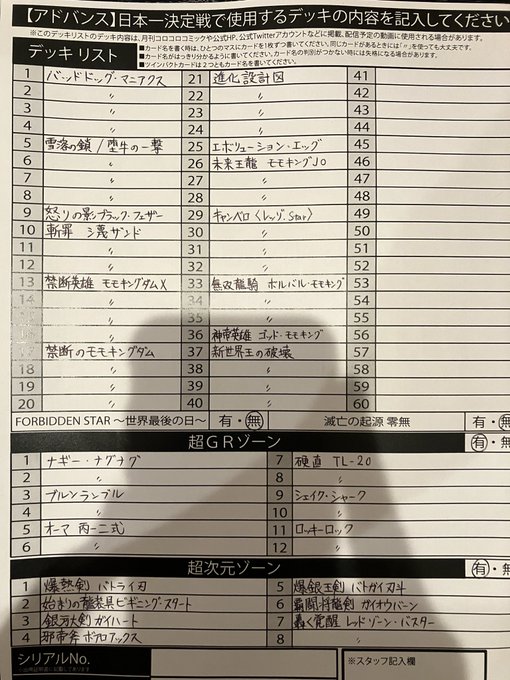 【アドバンス】日本一決定戦で使用するデッキの内容を記入してください
※このデッキリストのデッキ内容は、月刊コロコロコミックや公式HP、公式Twitterアカウントなどに掲載、配信予定の動画に使用される場合があります。
デッキリスト
■カード名を書く時は、ひとつのマスにカードを1枚ずつ書いてください。同じカードがあるときには「〃」を使っても大丈夫です。
■カード名がはっきり分かるように書いてください。カード名の判別がつかない時には失格になる場合があります。
■ツインパクトカードは2つともカード名を書いてください。
1 バッドドッグ・マニアクス 21 進化設計図 41
2 〃 22 〃 42
3 〃 23 〃 43
4 〃 24 〃 44
5 雪溶の鎖/堕牛の一撃 25 エボリューション・エッグ 45
6 〃 26 未来王龍 モモキングJO 46
7 〃 27 〃 47
8 〃 28 〃 48
9 怒りの影ブラック・フェザー 29 キャンベロ〈レッゾ.Star〉 49
10 斬罪 シ蔑ザンド 30 〃 50
11 〃 31 〃 51
12 〃 32 〃 52
13 禁断英雄 モモキングダムX 33 無双龍騎 ボルバル・モモキング 53
14 〃 34 〃 54
15 〃 35 〃 55
16 〃 36 神帝英雄 ゴッド・モモキング 56
17 禁断のモモキングダム 37 新世界王の破壊 57
18 〃 38 〃 58
19 〃 39 〃 59
20 〃 40 〃 60
FORBIDDEN STAR ～世界最後の日～ 有・無 滅亡の起源 零無 有・無
超GRゾーン 有・無
1 ナギー・ナグナグ 7 硬直 TL-20
2 〃 8 〃
3 プルンランブル 9 シェイク・シャーク
4 〃 10 〃
5 オーマ 丙-二式 11 ロッキーロック
6 〃 12 〃
超次元ゾーン 有・無
1 爆熱剣 バトライ刃 5 爆銀王剣 バトガイ刃斗
2 始まりの龍装具ビギニング・スタート 6 覇闘将龍剣 ガイオウバーン
3 銀河大剣 ガイハート 7 轟く覚醒 レッドゾーン・バスター
4 邪帝斧 ボアロアックス 8 〃
シリアルNo. ※スタッフ記入欄